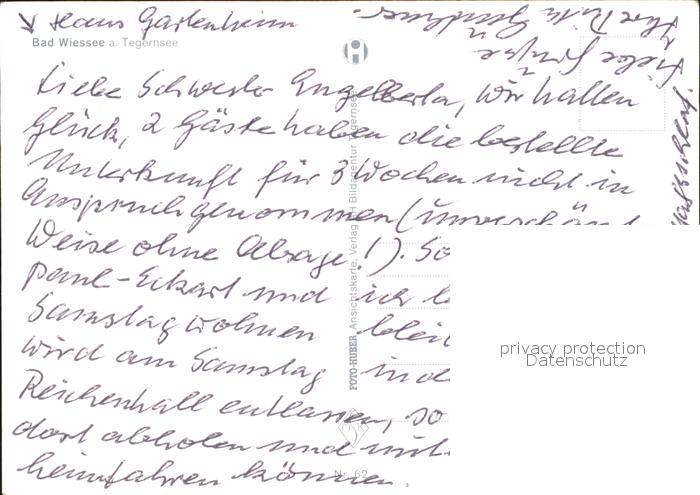 Haus Gartenheim
Bad Wiessee a. Tegernsee
Liebe Schwester Engelberta, wir hatten
Glück, 2 Gäste haben die bestellte
Unterkunft für 3 Wochen nicht in
Anspruch genommen (unverschämt
Weise ohne Absage!). So
Paul-Eckart und ich
Samstag wohnen bleib
wird am Samstag in de
Reichenhall entlassen, so
dort abholen und mit
heimfahren können.
Liebe Grüsse
Ihre
FOTO-HUBER Ansichtskarte, Verlag
Bildagentur Tegernsee
Nr. 62
privacy protection
Datenschutz